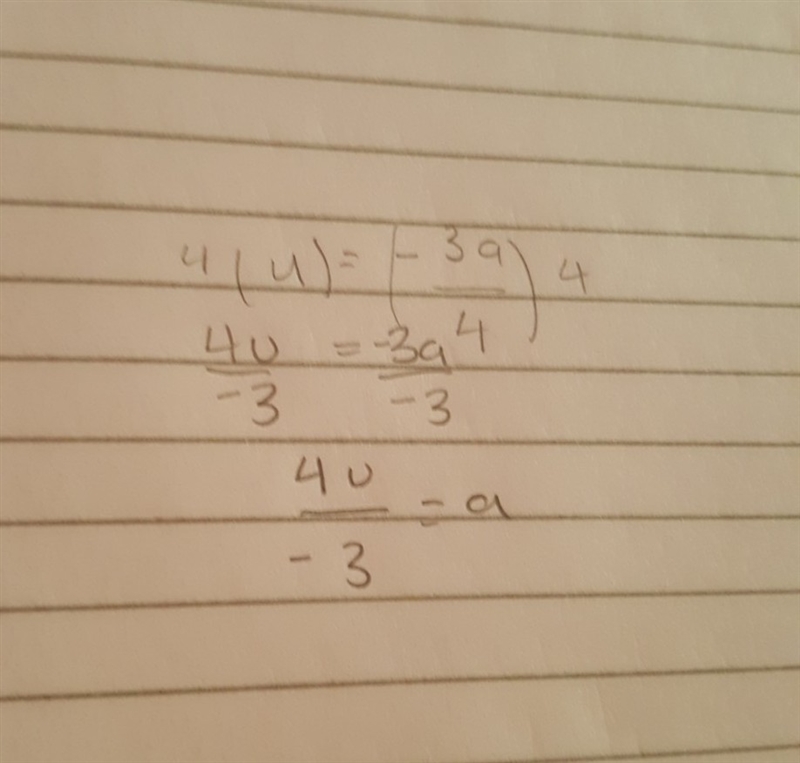 4(u) = (-3a/4)4
4u/-3 = -3a/-3
4u/-3 = a